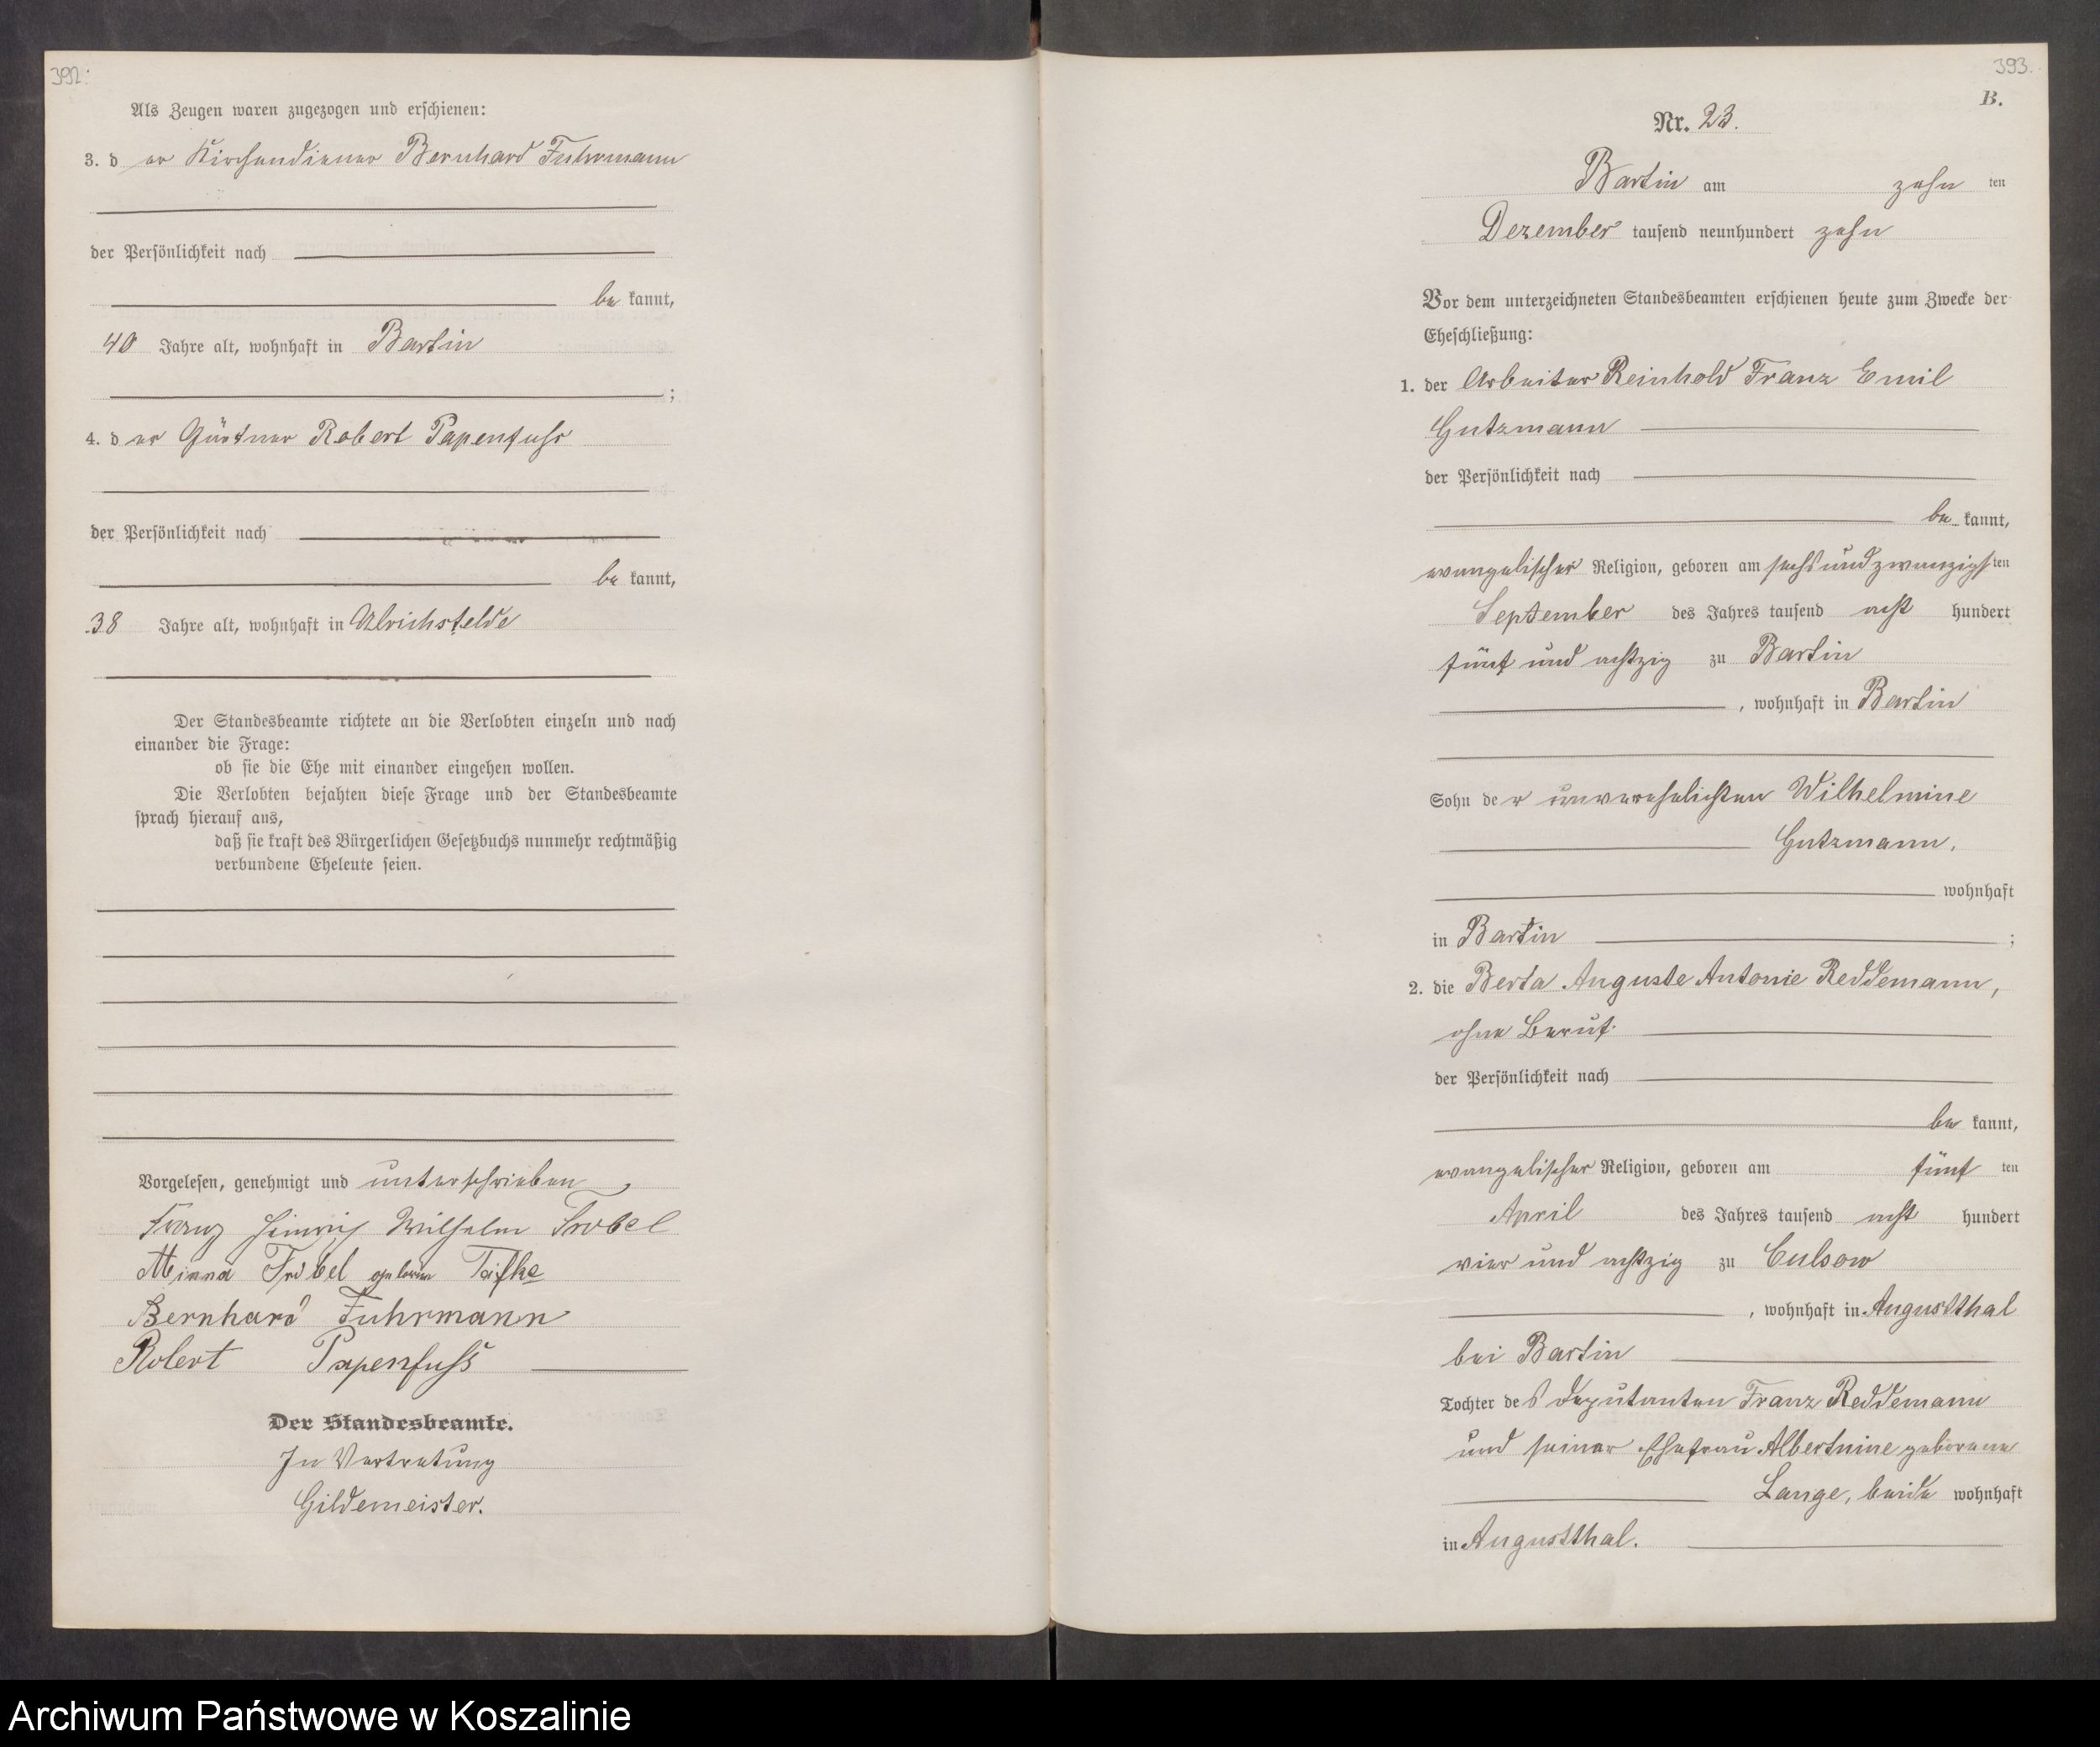 392.
Als Zeugen waren zugezogen und erschienen:
3. der Kirchendiener Bernhard Fuhrmann
der Persönlichkeit nach
be kannt,
40 Jahre alt, wohnhaft in Bartin
;
4. der Gärtner Robert Papenfuss
der Persönlichkeit nach
be kannt,
38 Jahre alt, wohnhaft in Ulrichsfelde
Der Standesbeamte richtete an die Verlobten einzeln und nach
einander die Frage:
ob sie die Ehe mit einander eingehen wollen.
Die Verlobten bejahten diese Frage und der Standesbeamte
sprach hierauf aus,
daß sie kraft des Bürgerlichen Gesetzbuchs nunmehr rechtmäßig
verbundene Eheleute seien.
Vorgelesen, genehmigt und unterschrieben
Franz Heinrich Wilhelm
Minna geborene
Bernhard Fuhrmann
Robert Papenfuß
Der Standesbeamte.
In Vertretung
Gildemeister.
393.
B.
Nr. 23.
Bartin am zehn ten
Dezember tausend neunhundert zehn
Vor dem unterzeichneten Standesbeamten erschienen heute zum Zwecke der
Eheschließung:
1. der Arbeiter Reinhold Franz Emil
Gutzmann
der Persönlichkeit nach
be kannt,
evangelischer Religion, geboren am sechsundzwanzigsten
September des Jahres tausend acht hundert
fünf und achtzig zu Bartin
, wohnhaft in Bartin
Sohn der unverehelichten Wilhelmine
Gutzmann,
wohnhaft
in Bartin ;
2. die Berta Auguste Antonie Reddemann,
ohne Beruf.
der Persönlichkeit nach
be kannt,
evangelischer Religion, geboren am fünf ten
April des Jahres tausend acht hundert
vier und achtzig zu Culsow
, wohnhaft in Augustthal
bei Bartin
Tochter des Deputanten Franz Reddemann
und seiner Ehefrau Albertnine geborene
Lange, beide wohnhaft
in Augustthal.
Archiwum Państwowe w Koszalinie